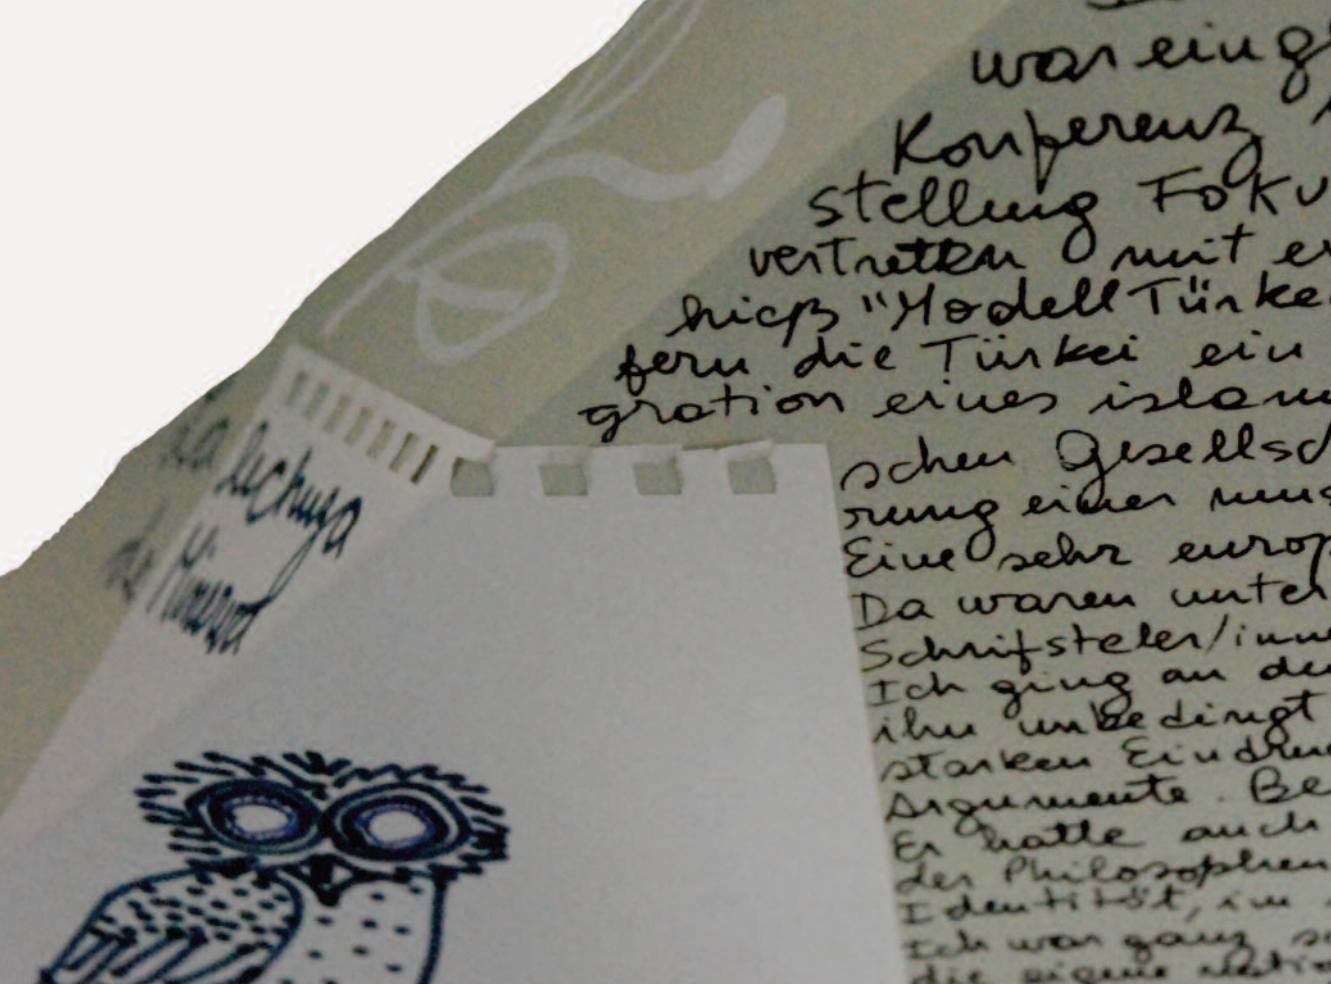 La lechuza
de Minerva
war eing
Konferenz,
stellung Foku
vertretten mit er
hieß "Modell Türke
fern die Türkei ein
gration eines islam
schen Gesellsc
rung einer mus
Eine sehr europ
Da waren unter
Schrifsteler/inne
Ich ging an de
ihn unbedingt
starken Eindru
Argumente. Be
Er hatte auch
der Philosophen
Identität, im
Ich war ganz
die eigene natio